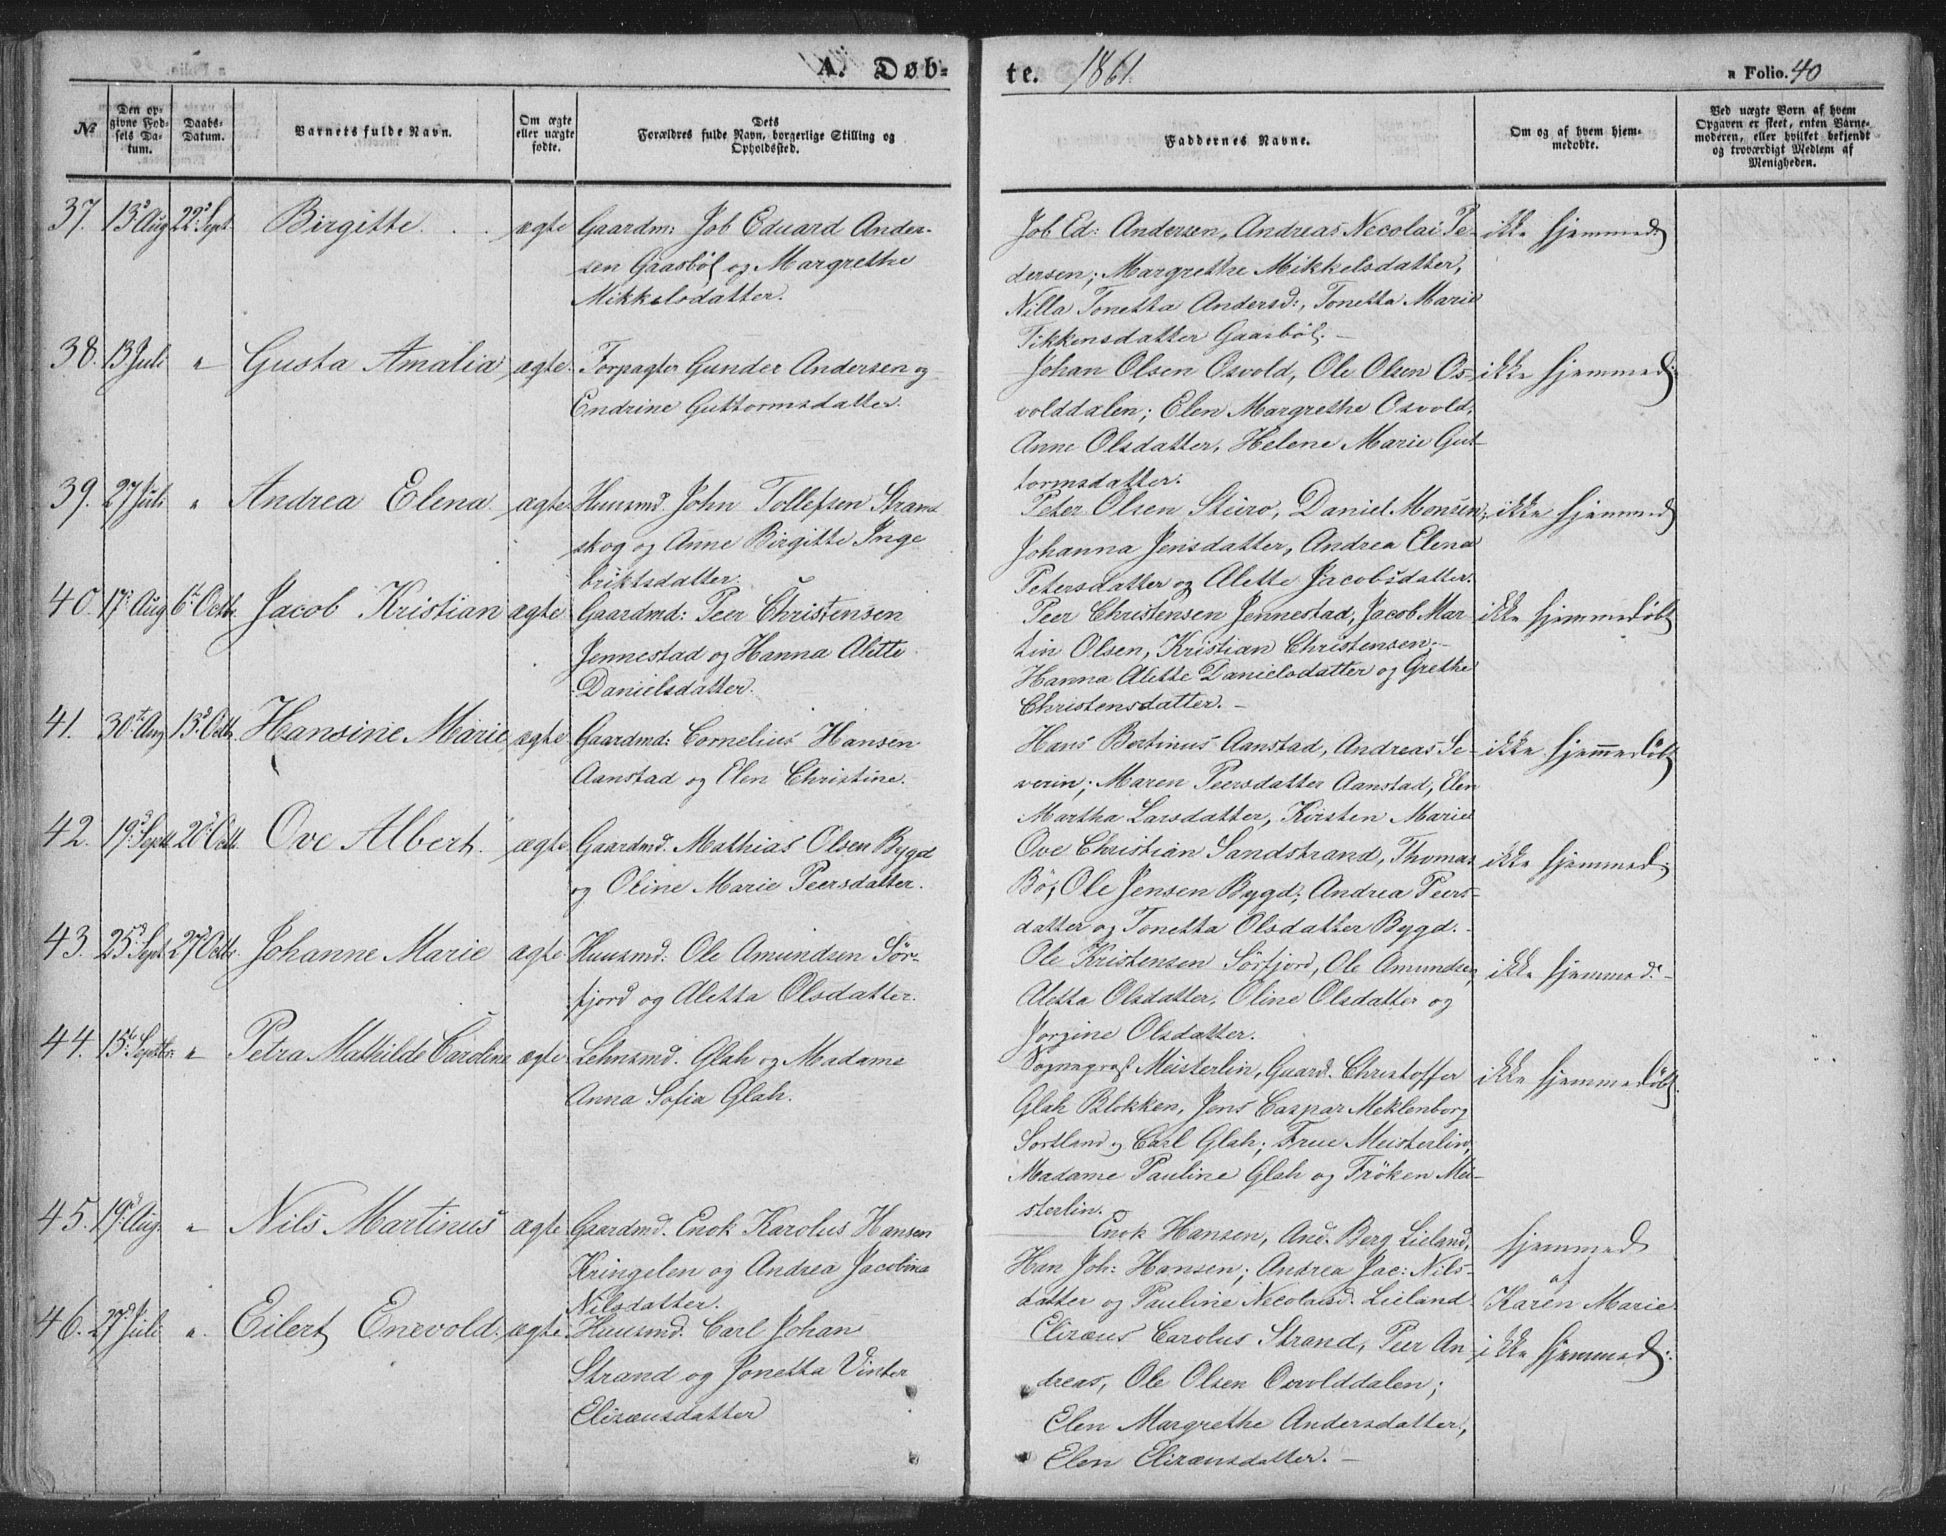 A. Døb-
te. 1861.
a Folio. 40
№
Den op-
givne Fød-
sels Da-
tum.
Daabs-
Datum.
Barnets fulde Navn.
Om ægte
eller uægte
fødte.
Dets
Forældres fulde Navn, borgerlige Stilling og
Opholdssted.
Faddernes Navne.
Om og af hvem hjem-
medøbte.
Ved uægte Børn af hvem
Opgaven er skeet, enten Barne-
moderen, eller hvilket bekjendt
og troværdigt Medlem af
Menigheden.
37. 13de Aug 22de Sept. Birgitte. ægte
Gaardm: Job Eduard Ander-
sen Gaasböl og Margrethe
Mikkelsdatter.
Job Ed: Andersen, Andreas Necolai Pe-
dersen; Margrethe Mikkelsdatter,
Nilla Tonetta Andersd:, Tonetta Marie
Tikkensdatter Gaasböl. -
ikke hjemmed
38. 13 Juli " Gusta Amalia ægte.
Forpagter Gunder Andersen og
Endrine Guttormsdatter.
Johan Olsen Osvold, Ole Olsen Os-
volddalen; Elen Margrethe Osvold,
Anne Olsdatter, Helene Marie Gut
tormsdatter.
ikke hjemmed:
39. 27 Juli " Andrea Elena. ægte
Huusmd. John Tollefsen Strand
skog og Anne Birgitte Inge
briktsdatter.
Peter Olsen Stüro, Daniel Monsen;
Johanna Jensdatter, Andrea Elena
Petersdatter og Alette Jacobsdatter.
ikke hjemmed
40. 17de Aug 6te Octb. Jacob Kristian ægte
Gaardmd: Peer Christensen
Jennestad og Hanna Alette
Danielsdatter.
Peer Christensen Jennestad, Jacob Mar-
tin Olsen, Kristian Christensen;-
Hanna Alette Danielsdatter og Grethe
Christensdatter. -
ikke hjemmedöbt
41. 30te Aug 13de Octb. Hansine Marie ægte
Gaardmd: Cornelius Hansen
Aanstad og Elen Christine.
Hans Bertinus Aanstad, Andreas Se-
verin; Maren Peersdatter Aanstad, Elen
Martha Larsdatter, Kirsten Marie
ikke hjemmedöbt
42. 19de Septb. 20de Octb. Ove Albert. ægte
Gaardmd. Mathias Olsen Bygd
og Oline Marie Peersdatter.
Ove Christian Sandstrand, Thomas
Bö, Ole Jensen Bygd; Andrea Peers-
datter og Tonetta Olsdatter Bygd.
ikke hjemmed:
43. 25de Sept. 27de Octbr. Johanne Marie ægte
Huusmd: Ole Amundsen Sör-
fjord og Aletta Olsdatter.
Ole Kristensen Sörfjord, Ole Amundsen,
Aletta Olsdatter, Oline Olsdatter og
Jorgine Olsdatter.
ikke hjemmed:-
44. 15de Septbr. " Petra Mathilde Caroline ægte
Lehnsmd. Glah og Madame
Anna Sofia Glah.
Sognepræst Meisterlin, Gaard. Christoffer
Glah Blokken, Jens Caspar Meklenborg
Sortland og Carl Glah; Frue Meisterlin,
Madame Pauline Glah og Fröken Mei-
sterlin.
ikke hjemmedöbt.
45. 19de Aug. " Nils Martinus ægte
Gaardmd. Enok Karolus Hansen
Kringelen og Andrea Jacobina
Nilsdatter.
Enok Hansen, And. Berg Lieland,
Han Joh: Hansen; Andrea Jac: Nils-
datter og Pauline Necolaisd. Lieland
hjemmed
af
Karen Marie
46. 27de Juli " Eilert Enevold. ægte
Huusmd. Carl Johan
Strand og Jonetta Vinter
Elisæusdatter
Elizæus Carolus Strand, Peer An-
dreas, Ole Olsen Osvolddalen;
Elen Margrethe Andersdatter,
Elen Elizæusdatter. -
ikke hjemmed: